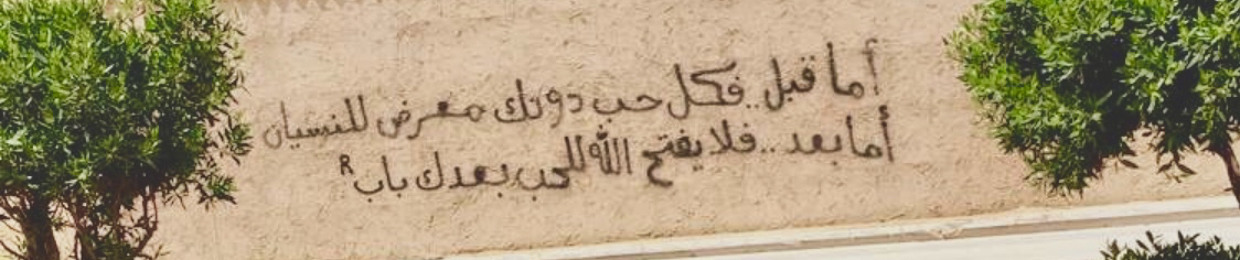 أما قبل.. فكل حب دونك معرض للنسيان
أما بعد... فلا يفتح الله للحب بعدك باب R